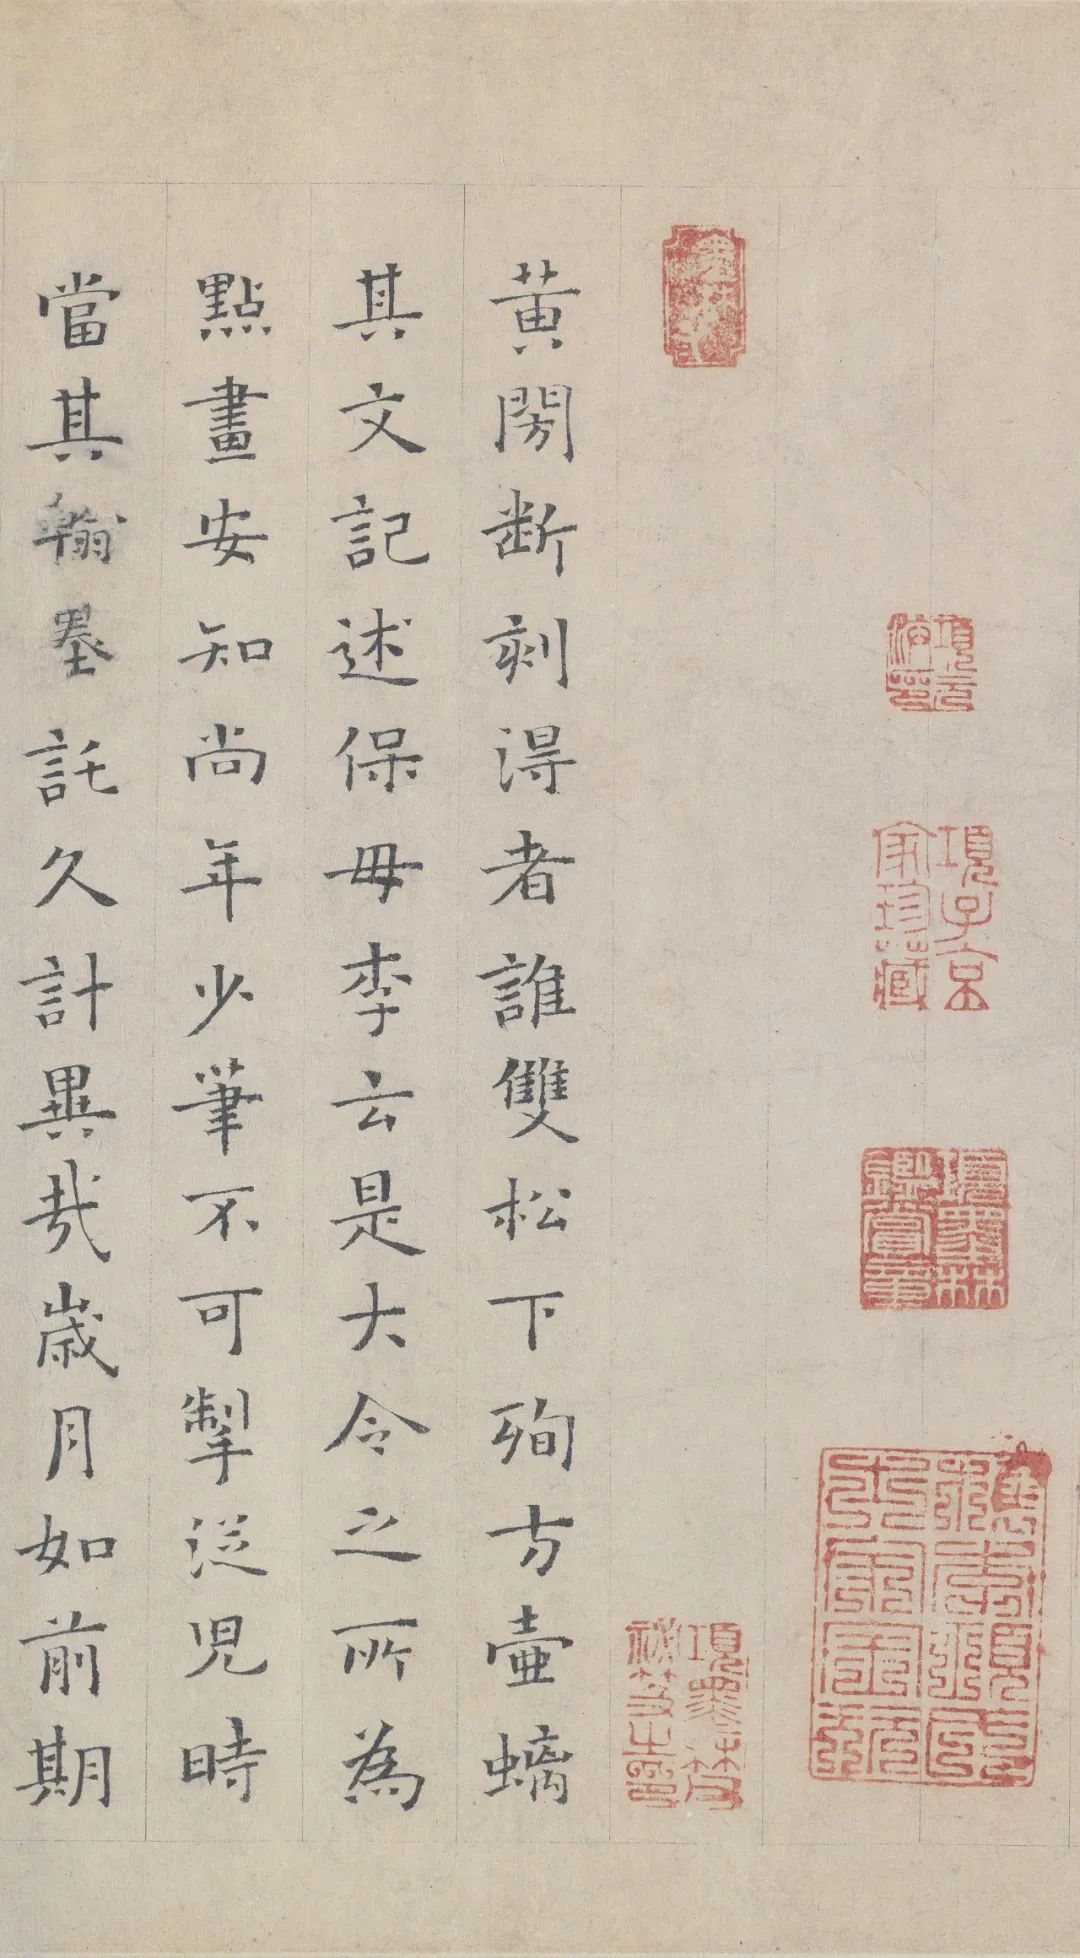 黃閍断刻淂者誰雙松下殉方壷螭
其文記述保毋李云是大令之所為
點畫安知尚年少筆不可掣従児時
當其翰墨託久計異哉歳月如前期
項元汴印
項子京家珍藏
項墨林鑑賞章
項墨林祕笈之印